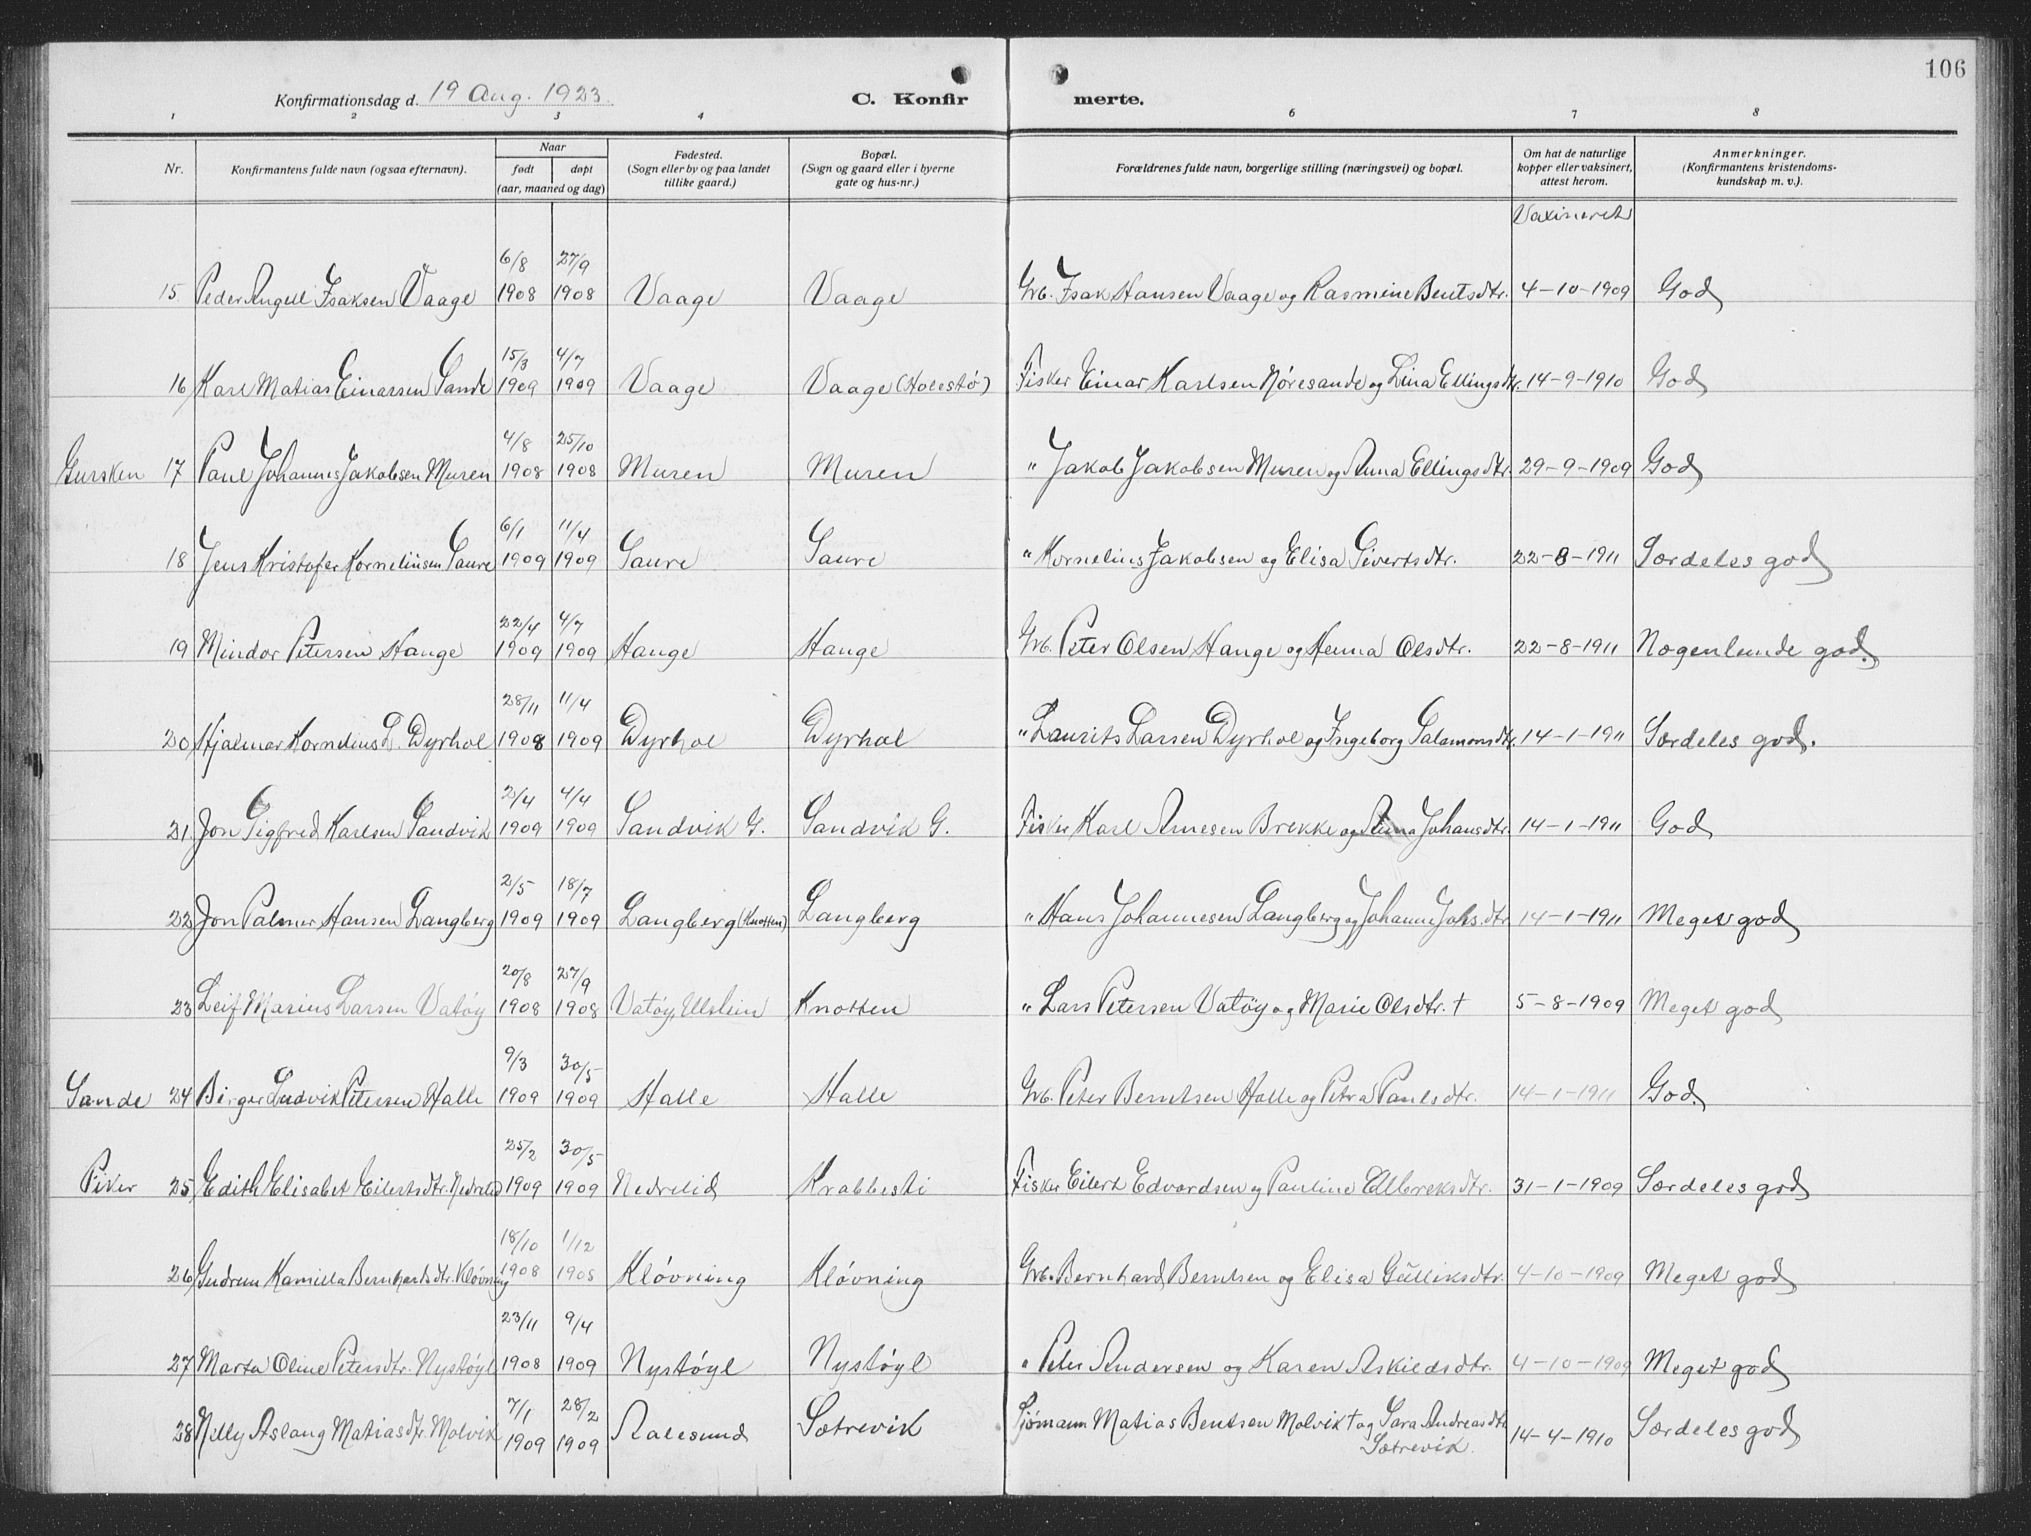 106
Konfirmationsdag d. 19 Aug. 1923.
C. Konfir merte.
1 2 3 4 6 7 8
Nr.
Konfirmantens fulde navn (ogsaa efternavn).
Naar
født døpt
(aar, maaned og dag)
Fødested.
(Sogn eller by og paa landet
tillike gaard.)
Bopæl.
(Sogn og gaard eller i byerne
gate og hus-nr.)
Forældrenes fulde navn, borgerlige stilling (næringsvei) og bopæl.
Om hat de naturlige
kopper eller vaksinert,
attest herom.
Anmerkninger.
(Konfirmantens kristendoms-
kundskap m. v.).
Vaxineret
6/8 27/9
15. Peder Angell Isaksen Vaage 1908 1908 Vaage Vaage Grb. Isak Hansen Vaage og Rasmine Bentsdtr. 4-10-1909 God
15/3 4/7
16 Karl Matias Einarsen Sande 1909 1909 Vaage Vaage (Holestø) Fisker Einar Karlsen Nøresande og Lina Ellingsdtr. 14-9-1910 God
4/8 25/10
Gursken 17 Paul Johannes Jakobsen Muren 1908 1908 Muren Muren " Jakob Jakobsen Muren og Anna Ellingsdtr. 29-9-1909 God
6/1 11/4
18 Jens Kristofer Korneliusen Saure 1909 1909 Saure Saure " Kornelius Jakobsen og Elisa Sivertsdtr. 22-8-1911 Særdeles god
22/4 4/7
19 Mindor Petersen Hauge 1909 1909 Hauge Hauge Grb. Peter Olsen Hauge og Henna Olsdtr. 22-8-1911 Nogenlunde god.
28/11 11/4
20 Hjalmar Kornelius L. Dyrhol 1908 1909 Dyrhol Dyrhol " Laurits Larsen Dyrhol og Ingeborg Salamonsdtr. 14-1-1911 Særdeles god.
2/4 4/4
21. Jon Sigfred Karlsen Sandvik 1909 1909 Sandvik G. Sandvik G. Fisker Karl Arnesen Brekke og Anna Johansdtr. 14-1-1911 God
2/5 18/7
22 Jon Palmer Hansen Langberg 1909 1909 Langberg (Knotten) Langberg " Hans Johannesen Langberg og Johanne Johs.dtr. 14-1-1911 Meget god
20/8 27/9
23 Leif Marius Larsen Vatøy 1908 1908 Vatøy, Ulstein Knotten " Lars Petersen Vatøy og Marie Olsdtr. † 5-8-1909 Meget god
9/3 30/5
Sande 24 Birger Ludvik Petersen Halle 1909 1909 Halle Halle Grb. Peter Berntsen Halle og Petra Paulsdtr. 14-1-1911 God.
25/2 30/5
Piker 25 Edith Elisabet Eilertsdtr. Nedrelid 1909 1909 Nedrelid Krabbesti Fisker Eilert Edvardsen og Pauline Elbreksdtr. 31-1-1909 Særdeles god
18/10 1/12
26 Gudrun Kamilla Bernhardsdtr. Kløvning 1908 1908 Kløvning Kløvning Grb. Bernhard Berntsen og Elisa Gulliksdtr. 4-10-1909 Meget god
23/11 9/4
27 Marta Oline Petersdtr. Nystøyl 1908 1909 Nystøyl Nystøyl " Peter Andersen og Karen Askildsdtr. 4-10-1909 Meget god
7/1 28/2
28 Nelly Aslaug Matiasdtr. Molvik 1909 1909 Aalesund Sætrevik Sjømann Matias Bentsen Molvik † og Sara Andreasdtr. 14-4-1910 Særdeles god
Sætrevik.